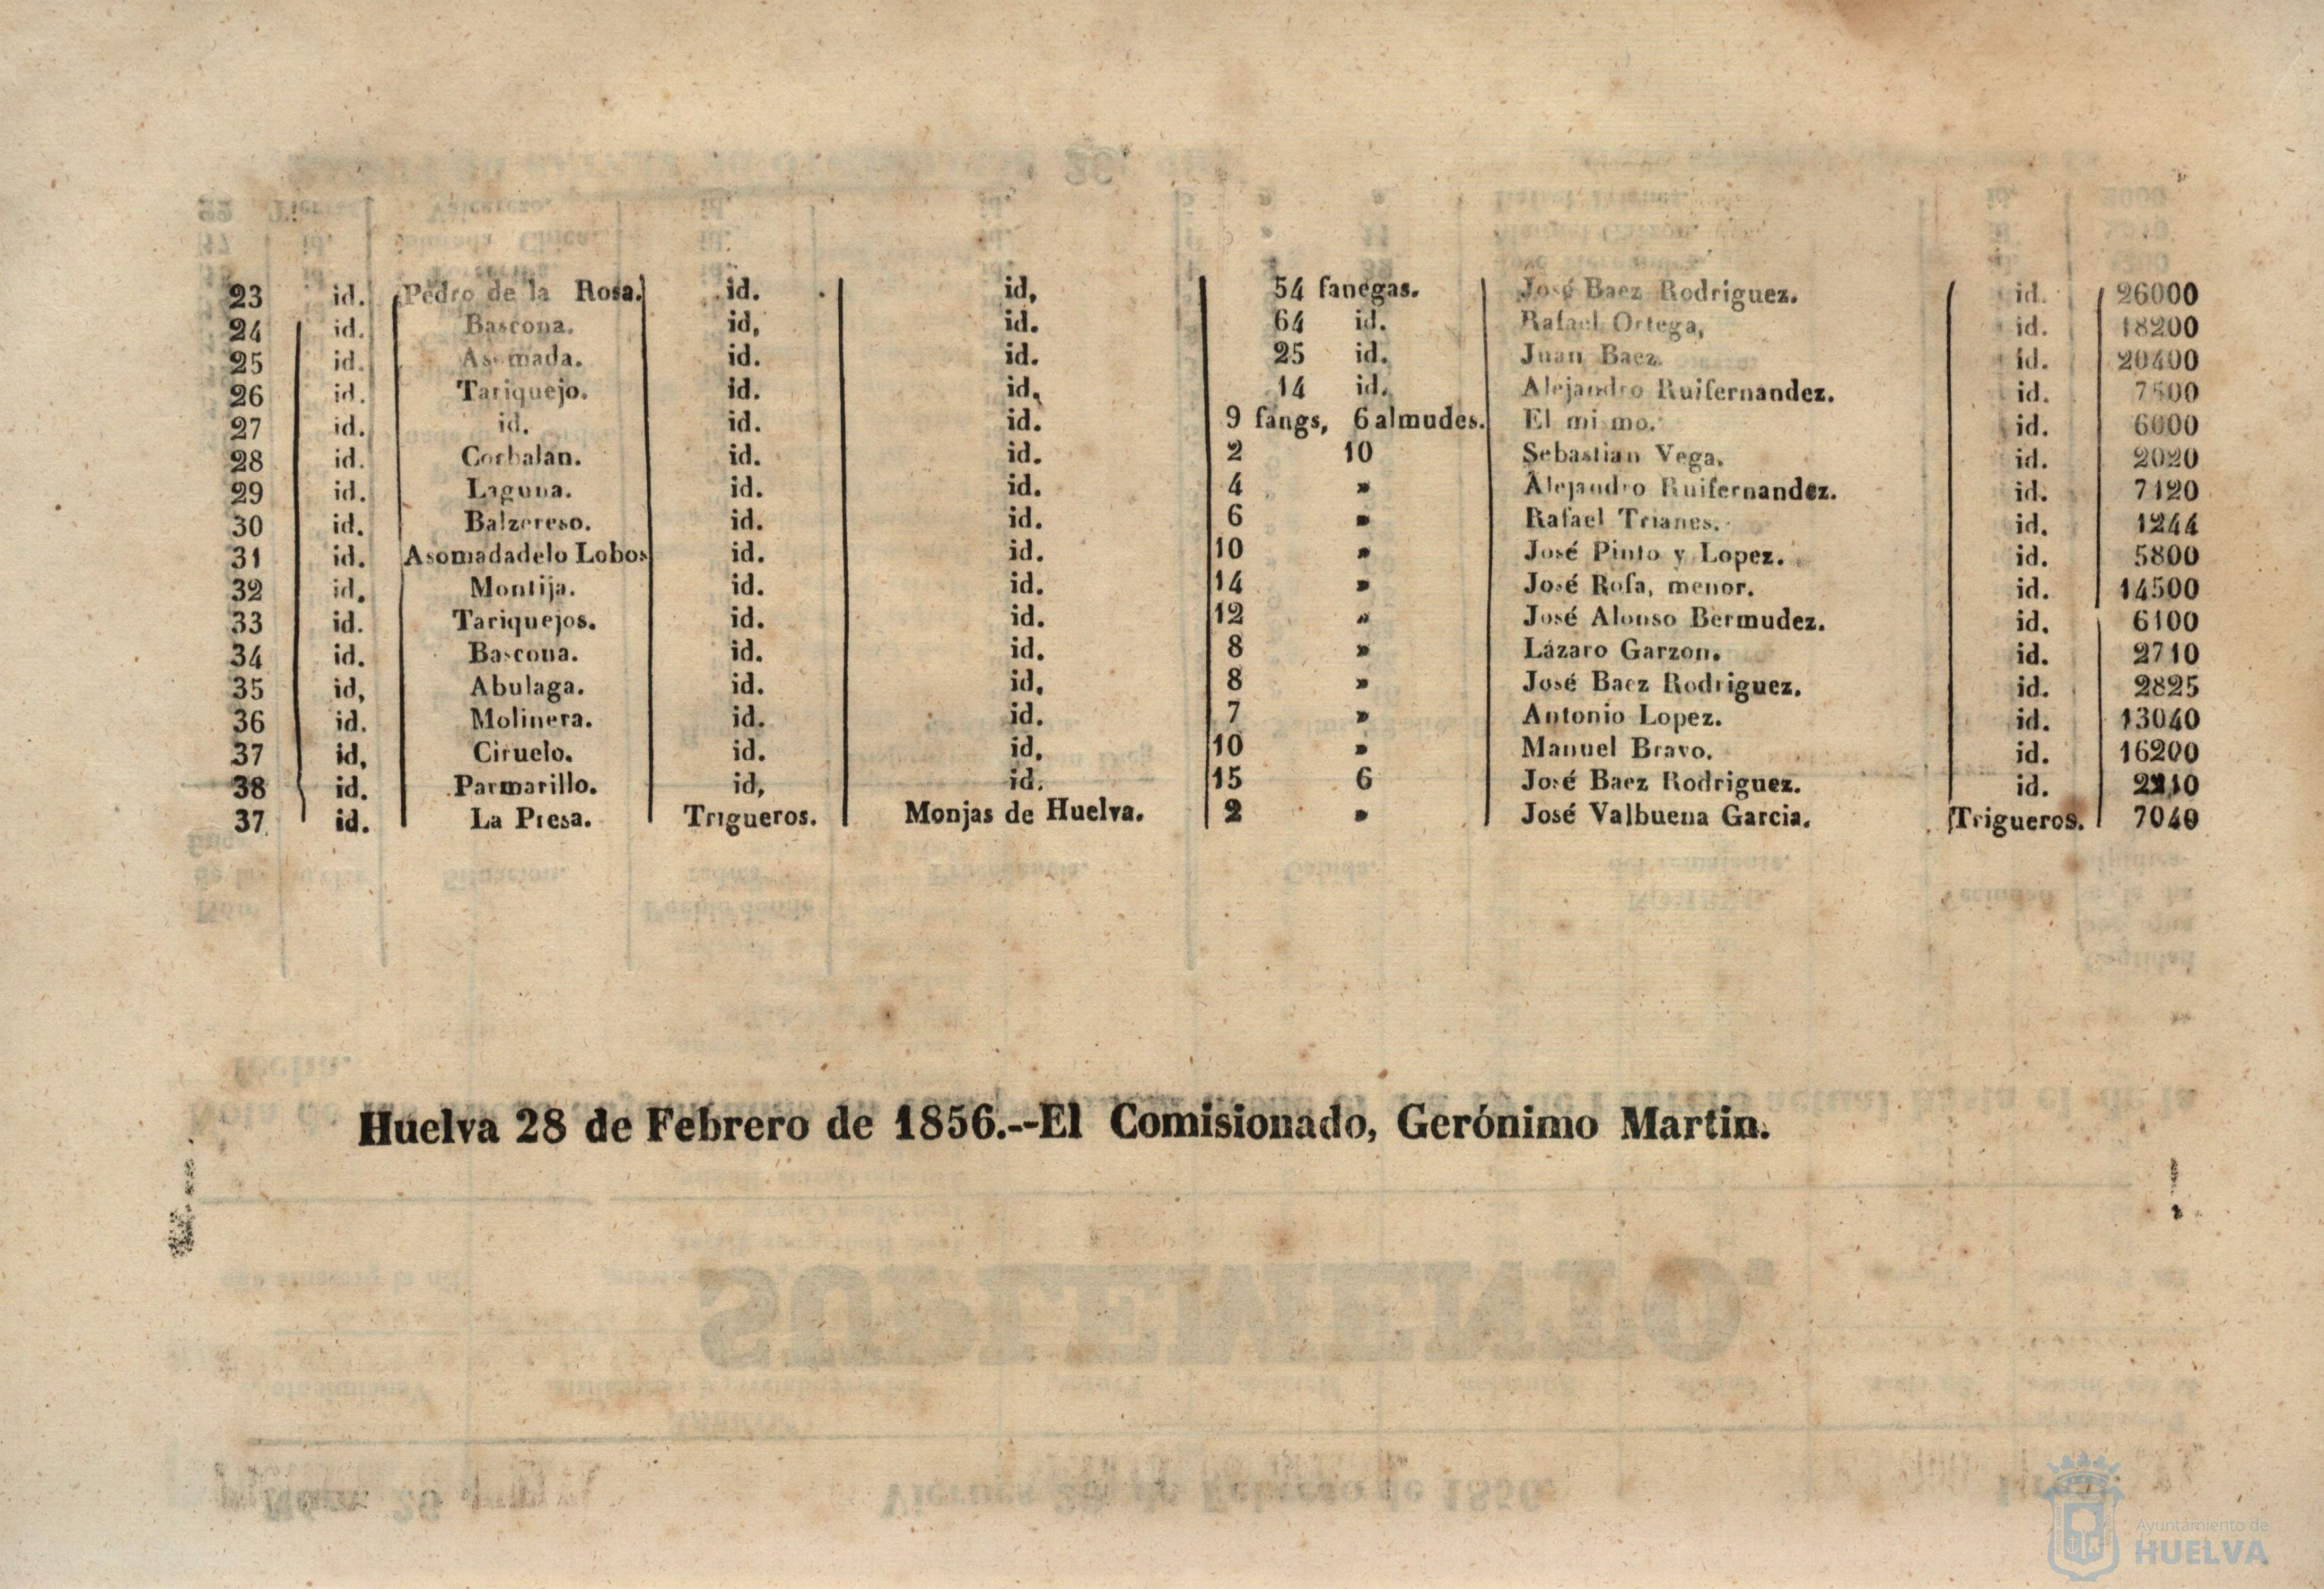 23 id. Pedro de la Rosa. id. id, 54 fanegas. José Baez Rodriguez. id. 26000
24 id. Bascona. id, id. 64 id. Rafael Ortega, id. 18200
25 id. Asomada. id. id. 25 id. Juan Baez. id. 20400
26 id. Tariquejo. id. id, 14 id. Alejandro Ruifernandez. id. 7500
27 id. id. id. id. 9 fangs, 6 almudes. El mismo. id. 6000
28 id. Corbalan. id. id. 2 10 Sebastian Vega. id. 2020
29 id. Laguna. id. id. 4 » Alejandro Ruifernandez. id. 7120
30 id. Balzereso. id. id. 6 » Rafael Trianes. id. 1244
31 id. Asomadadelo Lobos id. id. 10 » José Pinto y Lopez. id. 5800
32 id. Montija. id. id. 14 » José Rofa, menor. id. 14500
33 id. Tariquejos. id. id. 12 » José Alonso Bermudez. id. 6100
34 id. Bascona. id. id. 8 » Lázaro Garzon. id. 2710
35 id, Abulaga. id. id, 8 » José Baez Rodriguez. id. 2825
36 id. Molinera. id. id. 7 » Antonio Lopez. id. 13040
37 id, Ciruelo. id. id, 10 » Manuel Bravo. id. 16200
38 id. Parmarillo. id, id. 15 6 José Baez Rodriguez. id.
37 id. La Presa. Trigueros. Monjas de Huelva. 2 » José Valbuena Garcia. Trigueros. 7040
Huelva 28 de Febrero de 1856.--El Comisionado, Gerónimo Martin.
Ayuntamiento de
HUELVA